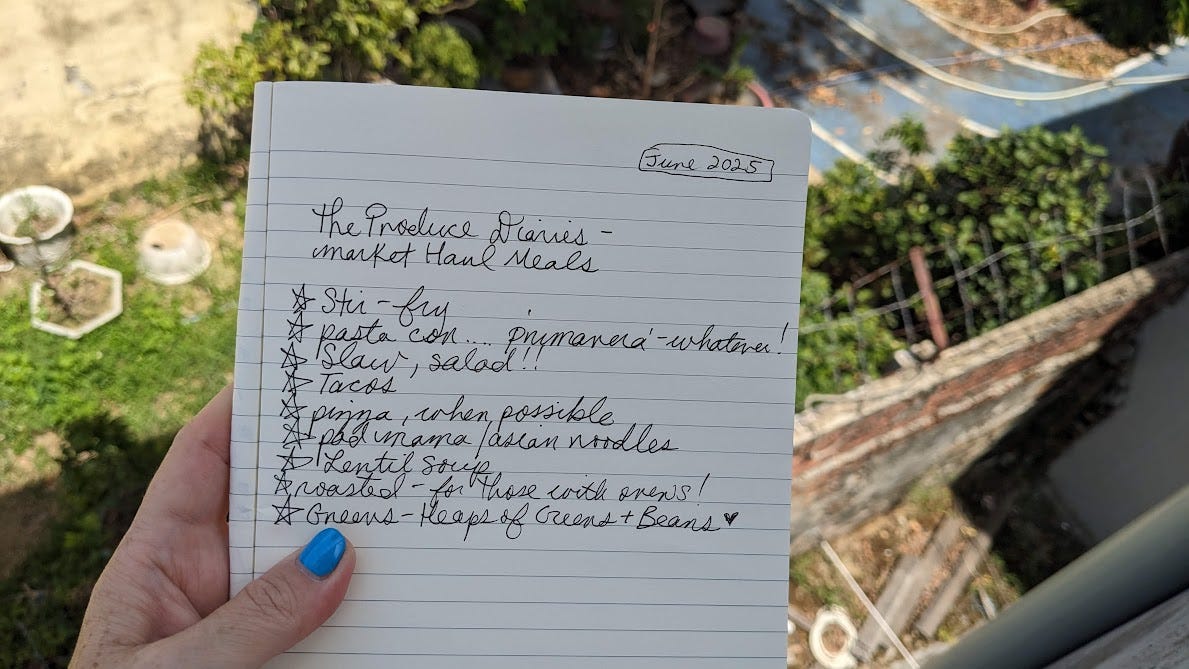 June 2025
The Produce Diaries -
Market Haul Meals
☆ Stir-fry
☆ pasta con.... primavera - whatever!
☆ Slaw, salad!!
☆ Tacos
☆ pizza, when possible
☆ pad mama/asian noodles
☆ Lentil Soup
☆ roasted - for those with ovens!
☆ Greens - Heaps of Greens + Beans ♥